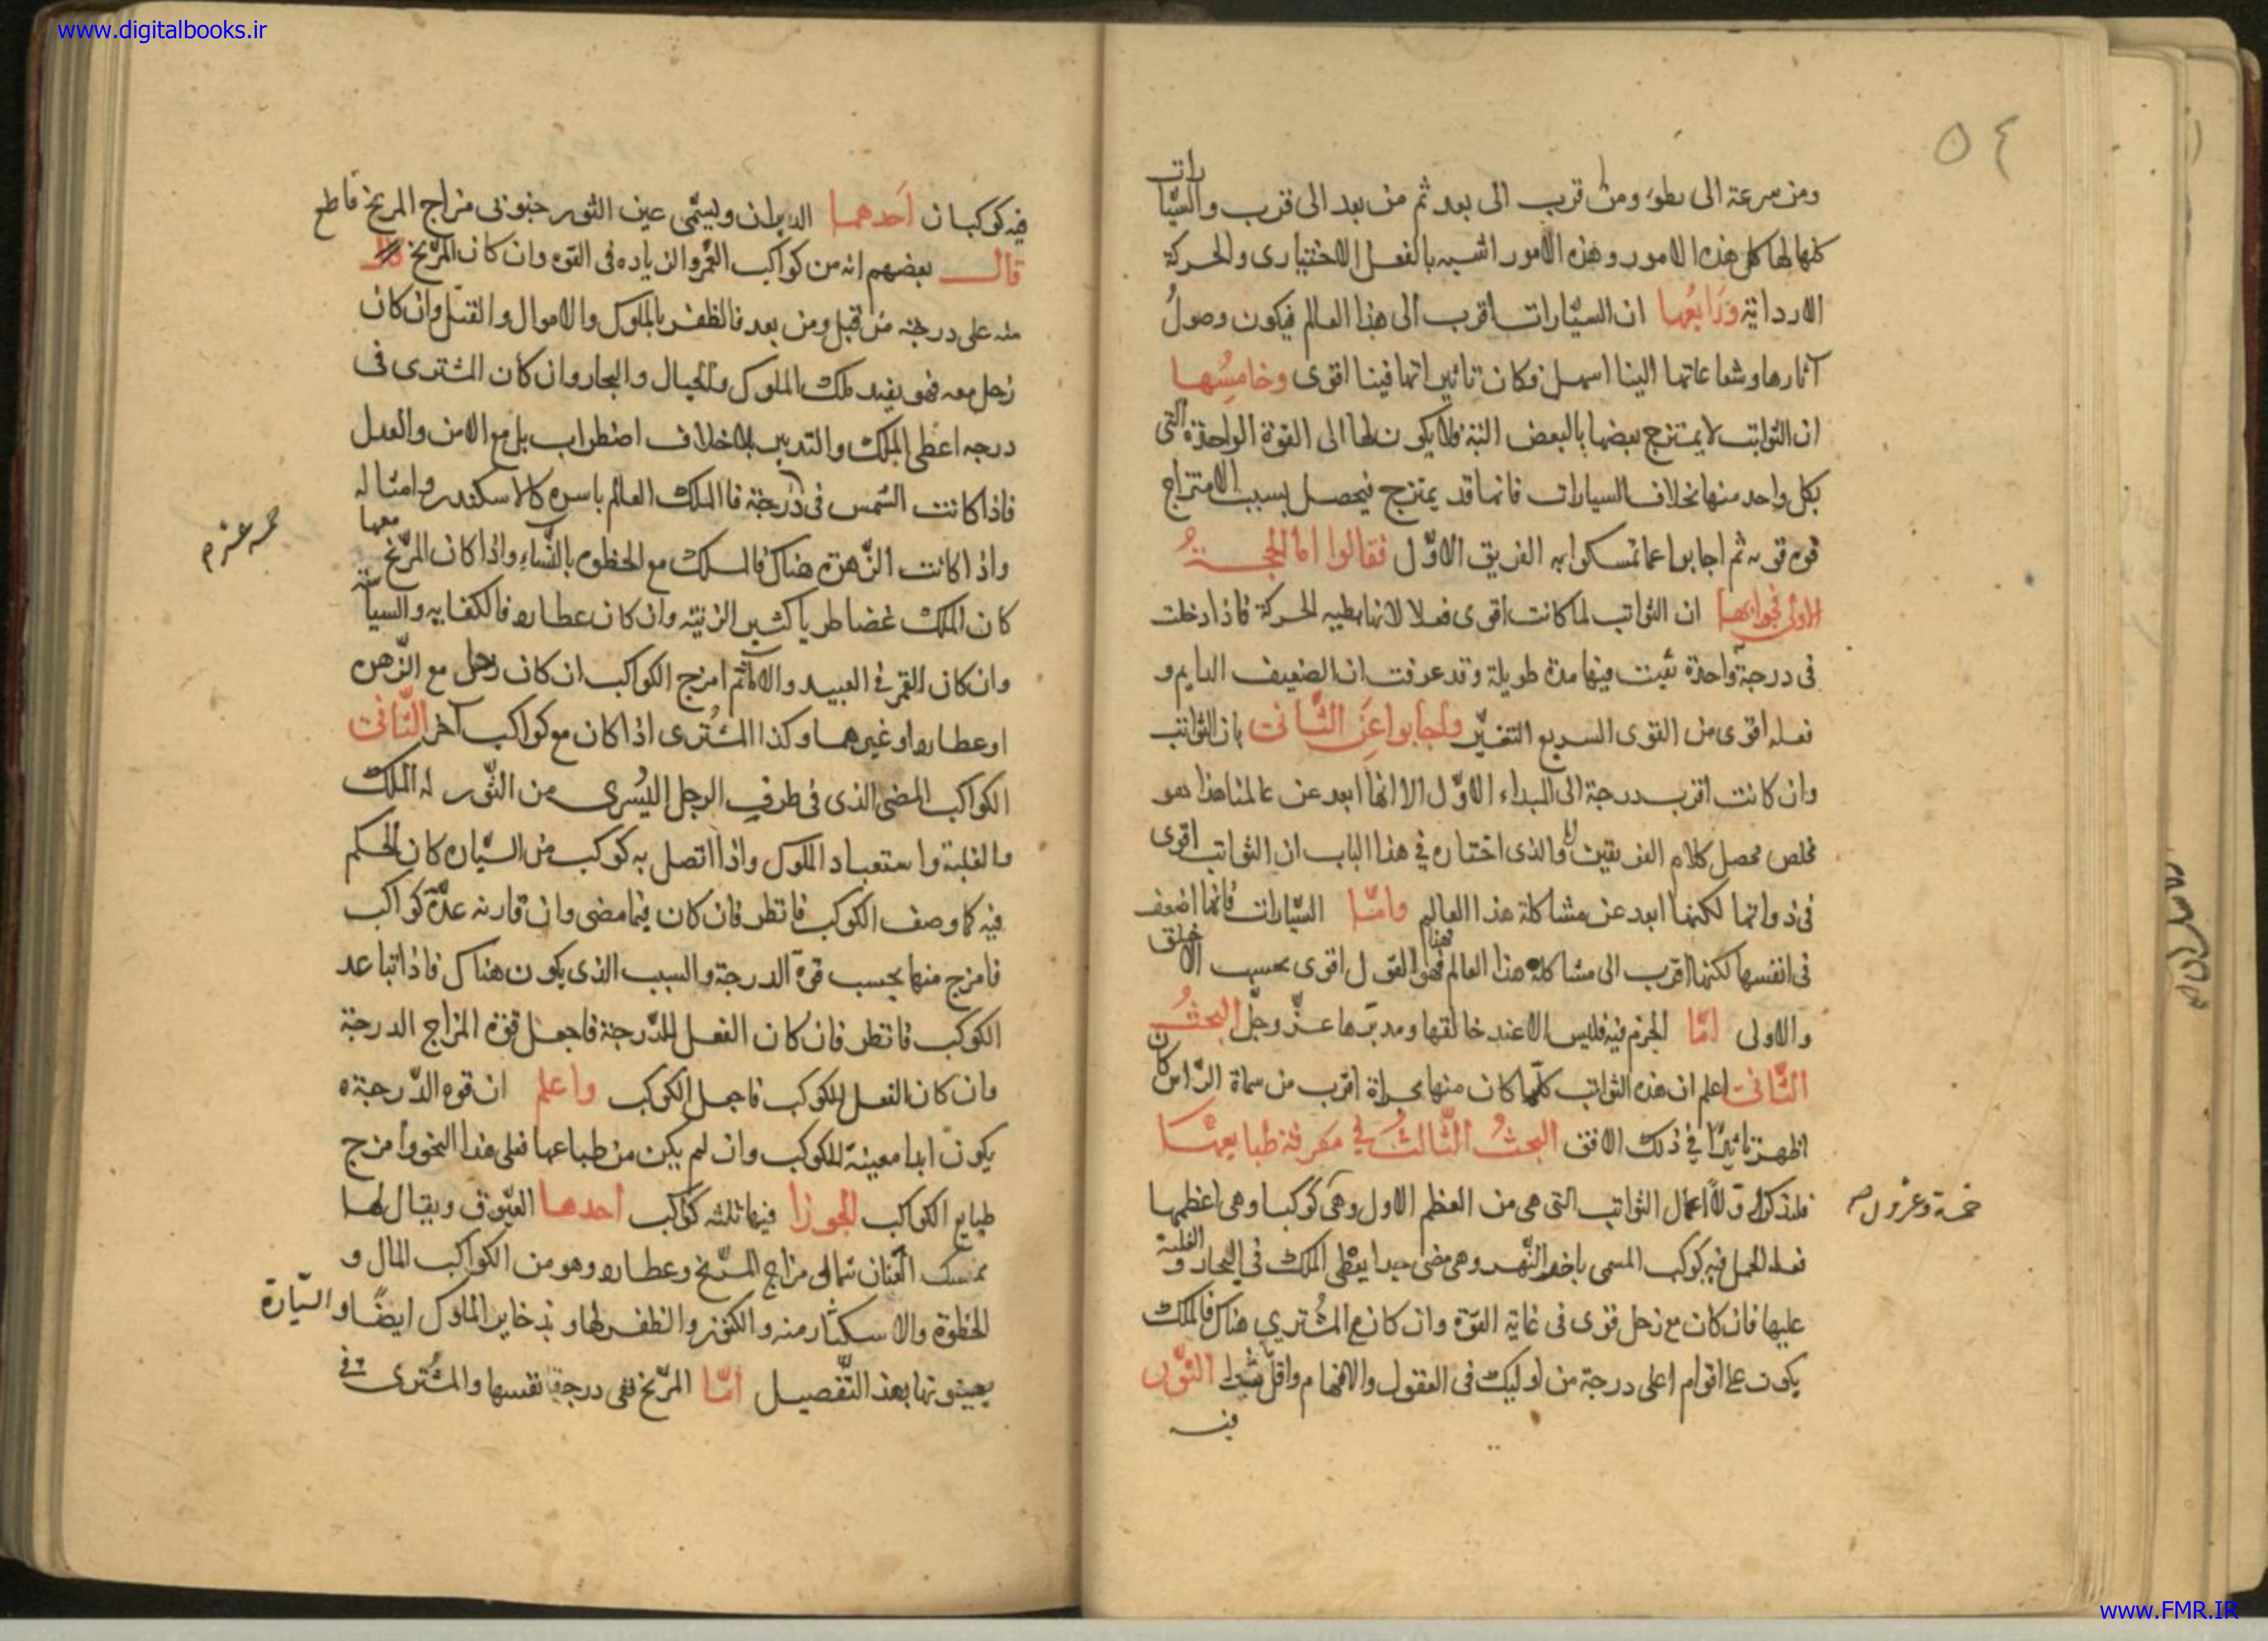 www.digitalbooks.ir
٥٤
ومن سرعة الى بطوء ومن قرب الى بعد ثم من بعد الى قرب والسيارات
كلها لها كل هذه الامور وهذه الامور اشبه بالفعل الاختيارى والحركة
الارداية ورابعها ان السيارات اقرب الى هذا العالم فيكون وصول
آثارها وشعاعاتها الينا اسهل فكان تاثيراتها فينا اقوى وخامسها
ان الثوابت لا يمتزج بعضها بالبعض البتة فلا يكون لها الى القوة الواحدة التى
بكل واحد منها بخلاف السيارات فانها قد يمتزج فيحصل بسبب الامتزاج
قوه قويه ثم اجابوا عما تمسكوا به الفريق الاول فقالوا اما الحجة
الاولى فجوابها ان الثوابت لما كانت اقوى فعلا لانها بطيه الحركة فاذا دخلت
فى درجة واحدة بقيت فيها مدة طويلة وقد عرفت ان الضعيف الدايم و
فعله اقوى من القوى السريع التغير واجابوا عن الثانى بان الثوابت
وان كانت اقرب درجة الى المبداء الاول الا انها ابعد عن عالمنا هذا فهو
مخلص محصل كلام الفريقين والذى اختاره في هذا الباب ان الثوابت اقوى
فى ذواتها لكنها ابعد عن مشاكلة هذا العالم واما السيارات فانها اضعف
فى انفسها لكنها اقرب الى مشاكلة هذا العالم فهذا هو القول اقوى بحسب الاخلق
والاولى اما الجزم فيه فليس الا عند خالقها ومدبرها عز وجل البحث
الثانى اعلم ان هذه الثوابت كلما كان منها بحراة اقرب من سماة الراس كان
اظهر تاثيرا في ذلك الافق البحث الثالث في معرفة طبايعها
فلنذكر اولا اعمال الثوابت التى هى من العظم الاول وهى كوكبا وهى اعظمها
خمسة وعشرون
فعله الحمل فيه كوكب المسمى باخر النهر وهى مضى جدا يعطى الملك فى البحار والغلبة
عليها فان كان مع زحل قوى فى غاية القوة وان كان مع المشتري هناك فالملك
يكون على اقوام اعلى درجة من اوليك فى العقول والافهام واقل الثور
فيه
فيه كوكبان احدهما الدبران ويسمى عين الثور جنوبى مزاج المريخ قاطع
قال بعضهم انه من كواكب العمر والزياده فى القوه وان كان المريخ
منه على درجة من قبل ومن بعد فالظفر بالملوك والاموال والقتل وان كان
زحل معه فهو يفيد ملك الملوك والجبال والبحار وان كان المشترى فى
درجه اعطى الملك والتدبير بلا خلاف اضطراب بل مع الامن والعدل
فاذا كانت الشمس فى درجة فالملك العالم باسره كالاسكندر وامثاله
واذا كانت الزهرة هناك فالملك مع الحظوه بالنساء واذا كان المريخ معها
كان الملك غضا طريا كثير الزينة وان كان عطارد فالكفايه والسياسة
وان كان القمر في العبيد والا ثم امزج الكواكب ان كان زحل مع الزهره
او عطارد او غيرهما وكذا المشترى اذا كان مع كواكب آخر الثانى
الكواكب المضى الذى فى طرف الرجل اليسرى من الثور له الملك
والغلبة واستعباد الملوك واذا اتصل به كوكب من السياره كان الحكم
فيه كما وصف الكوكب فانظر فان كان فيما مضى وان قارنه عدة كواكب
فامزج منها بحسب قوة الدرجة والسبب الذى يكون هناك فاذا تباعد
الكوكب فانظر فان كان الفعل للدرجة فاجعل قوة المزاج الدرجة
وان كان الفعل للكوكب فاجعل الكوكب واعلم ان قوه الدرجة
يكون ابدا معينة للكوكب وان لم يكن من طباعها فعلى هذا النحو امزج
طبايع الكواكب الجوزا فيها ثلثه كواكب احدها العيوق ويقال لها
ممسك العنان شمالى مزاج المريخ وعطارد وهو من الكواكب المال و
الحظوة والاستكثار منه والكنوز والظفر لها وبذخاير الملوك ايضا والسيارة
يعينونها بهذا التفصيل اما المريخ ففى درجة نفسها والمشترى فى
www.FMR.IR